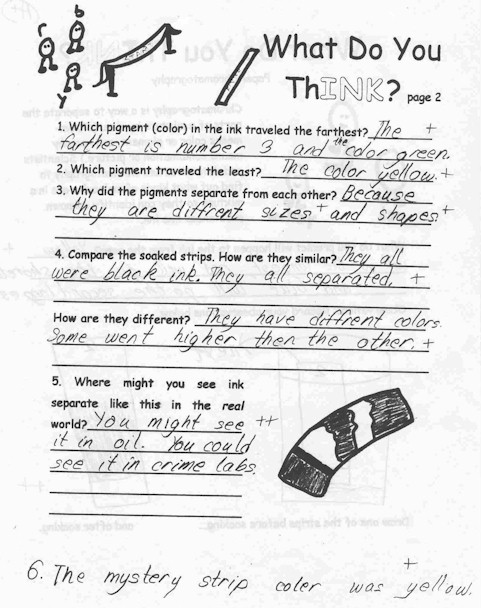 b
r
y
What Do You
ThINK? page 2
1. Which pigment (color) in the ink traveled the farthest? The +
farthest is number 3 and the color green.
2. Which pigment traveled the least? The color yellow. +
3. Why did the pigments separate from each other? Because
they are diffrent sizes + and shapes. +
4. Compare the soaked strips. How are they similar? They all
were black ink. They all separated. +
How are they different? They have diffrent colors.
Some went higher then the other. +
5. Where might you see ink
separate like this in the real
world? You might see ++
it in oil. You could
see it in crime labs.
+
6. The mystery strip coler was yellow.